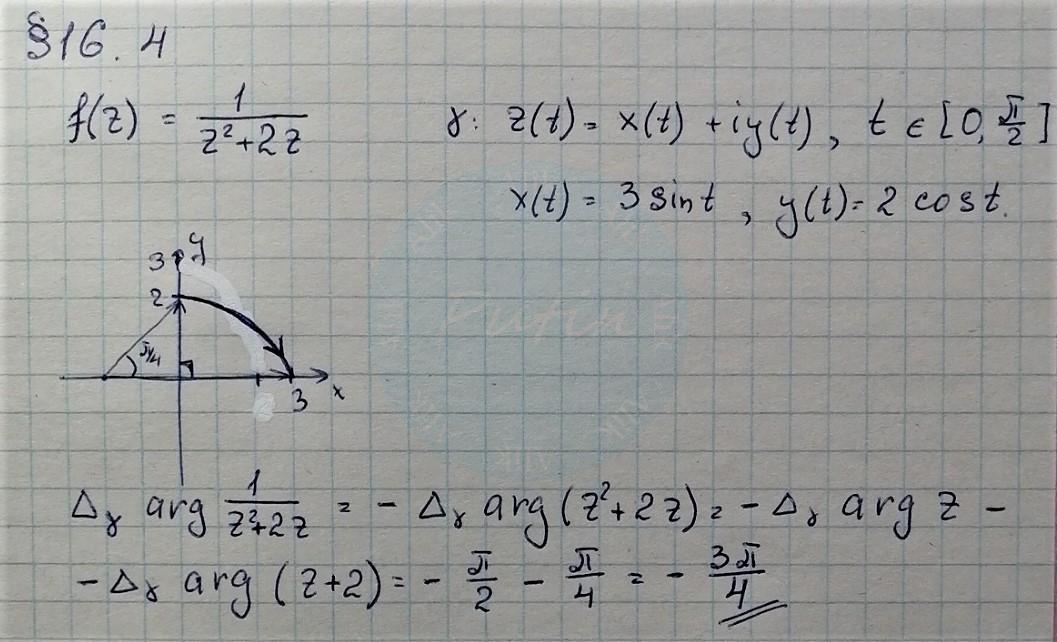 §16. 4
f(z) = 1/(z²+2z)   γ: z(t) = x(t) + iy(t), t ∈ [0, π/2]
x(t) = 3 sin t, y(t) = 2 cos t.
y
3
2
π/4
3
x
Δγ arg 1/(z²+2z) = - Δγ arg (z²+2z) = - Δγ arg z -
- Δγ arg (z+2) = - π/2 - π/4 = - 3π/4